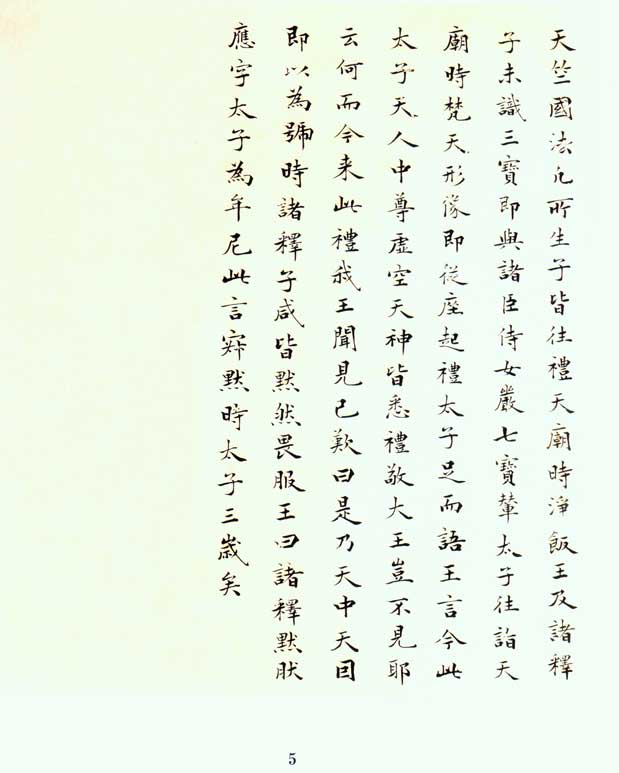 天竺國法凡所生子皆往禮天廟時淨飯王及諸釋
子未識三寶即與諸臣侍女嚴七寶輦太子往詣天
廟時梵天形像即從座起禮太子足而語王言今此
太子天人中尊虛空天神皆悉禮敬大王豈不見耶
云何而今来此禮我王聞見已歎曰是乃天中天因
即以為號時諸釋子咸皆默然畏服王曰諸釋默肰
應字太子為牟尼此言寂默時太子三歲矣
5